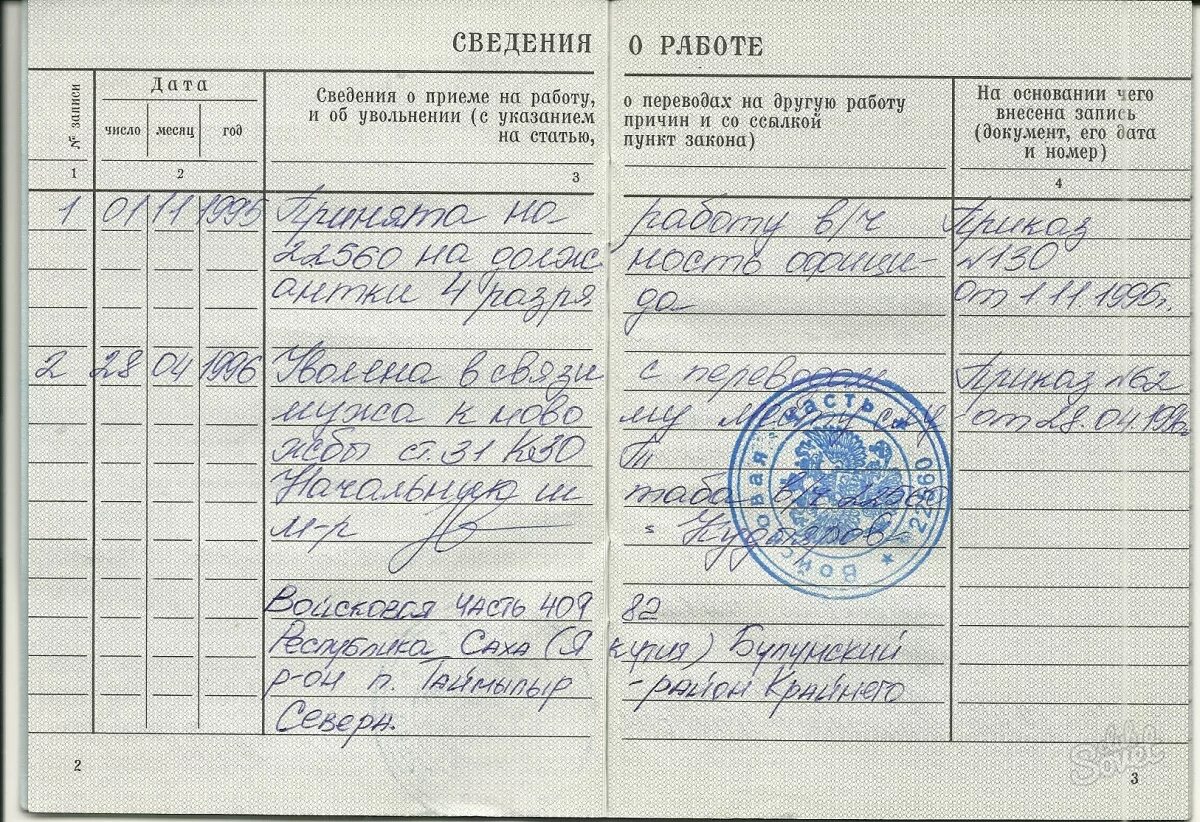 СВЕДЕНИЯ О РАБОТЕ
№ записи
Дата
число месяц год
Сведения о приеме на работу, о переводах на другую работу
и об увольнении (с указанием причин и со ссылкой
на статью, пункт закона)
На основании чего
внесена запись
(документ, его дата
и номер)
1 2 3 4
1 01 11 1995 Принята на работу в/ч Приказ
22560 на должность официантки №130
4 разряда от 1 11 1995г.
2 28 04 1996 Уволена в связи с переводом Приказ №62
мужа к новому месту слу от 28.04.1996г.
жбы ст.31 КЗО Т
Начальник штаба в/ч 22560
м-р Кудояров
Войсковая часть 22560
Войсковая часть 40982
Республика Саха (Якутия) Булунский
р-он п. Таймылыр - район Крайнего
Севера.
2
3
Sovet